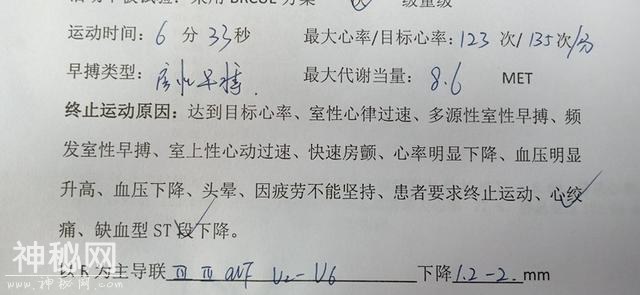 运动时间：6 分 33秒 最大心率/目标心率：123 次/ 135次/分
早搏类型：房性早搏. 最大代谢当量：8.6 MET
终止运动原因：达到目标心率、室性心律过速、多源性室性早搏、频
发室性早搏、室上性心动过速、快速房颤、心率明显下降、血压明显
升高、血压下降、头晕、因疲劳不能坚持、患者要求终止运动、心绞
痛、缺血型 ST 段下降。
以 R 为主导联 II III aVF V2-V6 下降 1.2-2. mm
神秘网